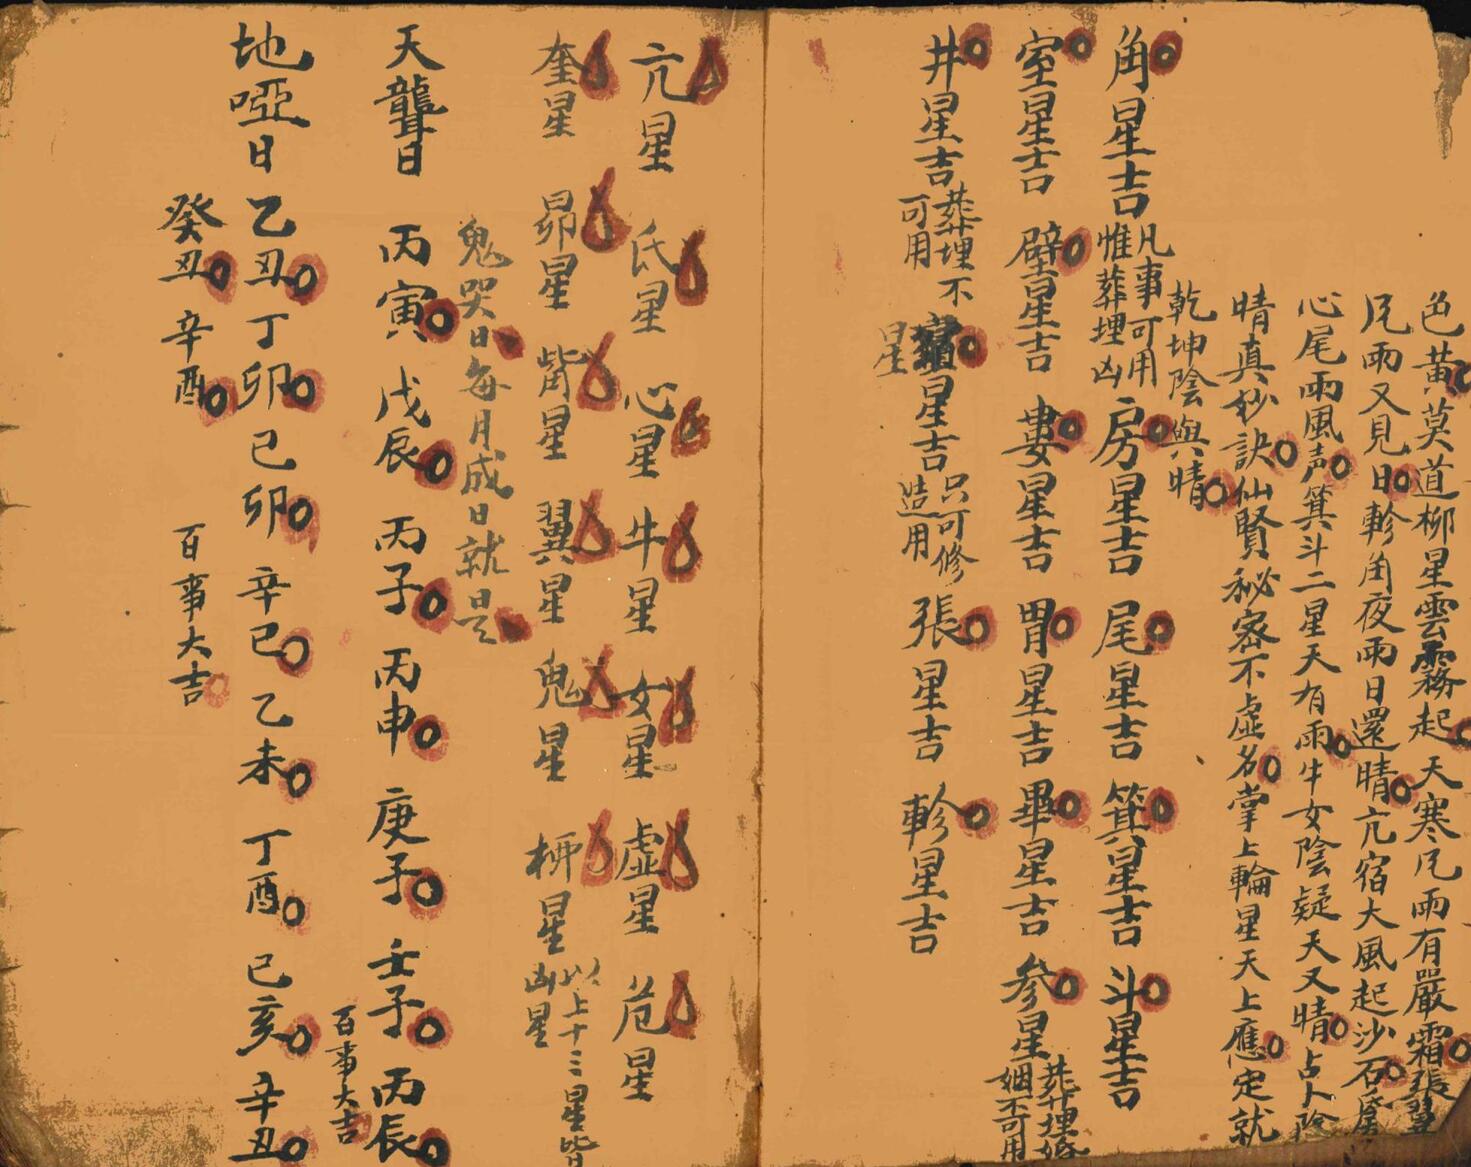 色黃莫道柳星雲霧起天寒凡雨有嚴霜張翌
凡雨又見日軫角夜雨日還晴亢宿大風起沙石
心尾雨風声箕斗二星天有雨牛女陰疑天又晴占卜陰
晴真杪訣仙賢秘密不虛名掌上輪星天上應定就
乾坤陰與晴
角星吉 凡事可用惟葬埋凶 房星吉 尾星吉 箕星吉 斗星吉
室星吉 壁星吉 婁星吉 胃星吉 畢星吉 参星 葬埋婚姻不可用
井星吉 葬埋不可用 星星吉 只可修造用 張星吉 軫星吉
星
亢星 氐星 心星 牛星 女星 虛星 危星
奎星 昴星 觜星 翼星 鬼星 柳星 以上十三星皆凶星
鬼哭日每月成日就是
天聾日 丙寅 戊辰 丙子 丙申 庚子 壬子 丙辰 百事大吉
地啞日 乙丑 丁卯 己卯 辛巳 乙未 丁酉 己亥 辛丑
癸丑 辛酉 百事大吉